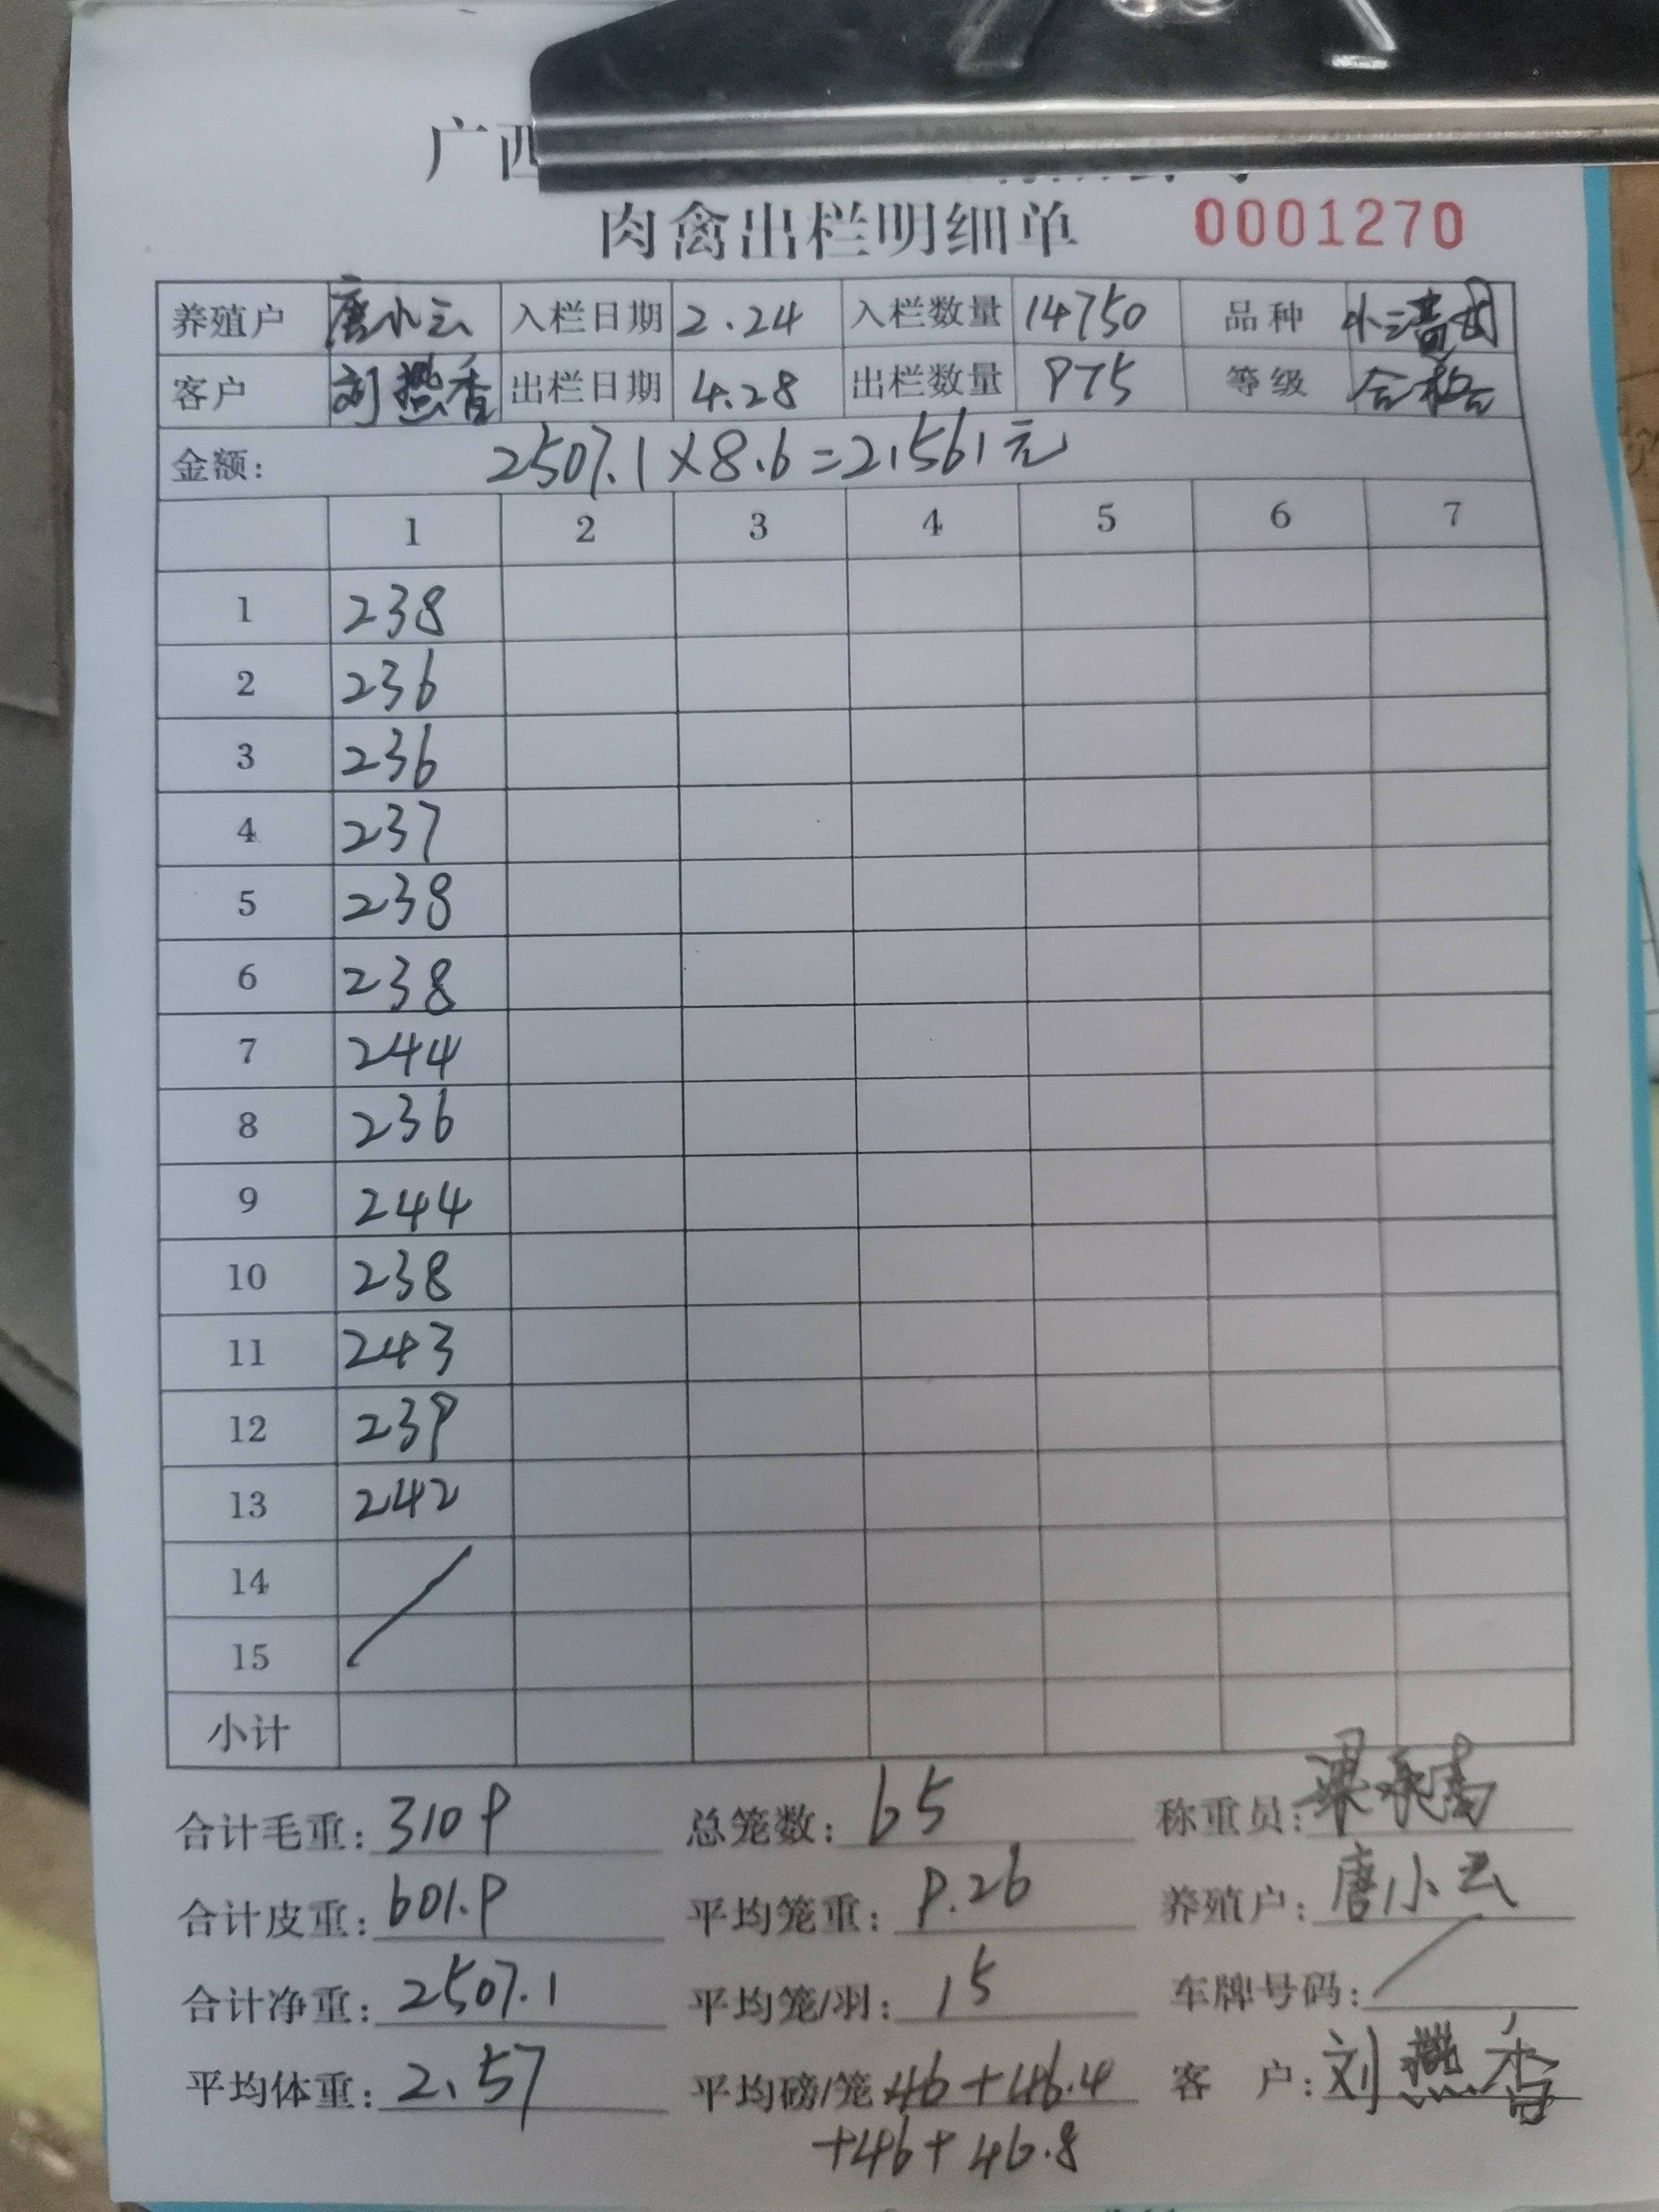 广西
肉禽出栏明细单 0001270
养殖户 唐小云 入栏日期 2.24 入栏数量 14750 品种
客户 刘燕香 出栏日期 4.28 出栏数量 975 等级 合格
金额: 2507.1×8.6=21561元
1 2 3 4 5 6 7
1 238
2 236
3 236
4 237
5 238
6 238
7 244
8 236
9 244
10 238
11 243
12 239
13 242
14
15
小计
合计毛重: 3109 总笼数: 65 称重员:
合计皮重: 601.9 平均笼重: 9.26 养殖户: 唐小云
合计净重: 2507.1 平均笼/羽: 15 车牌号码:
平均体重: 2.57 平均磅/笼 46+46.4 客 户: 刘燕香
+46+46.8